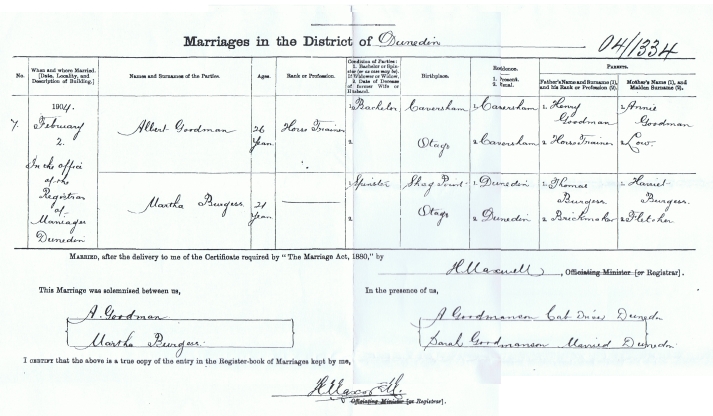 Marriages in the District of Dunedin 04/1334
No. When and where Married. [Date, Locality, and Description of Building.] Names and Surnames of the Parties. Ages. Rank or Profession. Condition of Parties: 1. Bachelor or Spinster (or as case may be). If Widower or Widow, 2. Date of Decease of former Wife or Husband. Birthplace. Residence. 1. Present. 2. Usual. Parents. Father's Name and Surname (1), and his Rank or Profession (2). Mother's Name (1), and Maiden Surname (2).
1904.
7. February
2.
Albert Goodman 26 Years Horse Trainer 1 Bachelor 2 Caversham Otago 1 Caversham 2 Caversham 1 Henry Goodman 2 Horse Trainer 1 Annie Goodman 2 Low.
In the office
of the
Registrar
of
Marriages
Dunedin
Martha Burgess 21 Years 1 Spinster 2 Shag Point Otago 1 Dunedin 2 Dunedin 1 Thomas Burgess 2 Brickmaker 1 Harriet Burgess. 2 Fletcher
Married, after the delivery to me of the Certificate required by "The Marriage Act, 1880," by
H Maxwell, Officiating Minister [or Registrar].
This Marriage was solemnised between us, In the presence of us,
A. Goodman A Goodmanson Cab Driver Dunedin
Martha Burgess. Sarah Goodmanson Married Dunedin
I certify that the above is a true copy of the entry in the Register-book of Marriages kept by me,
H Maxwell.
Officiating Minister [or Registrar].